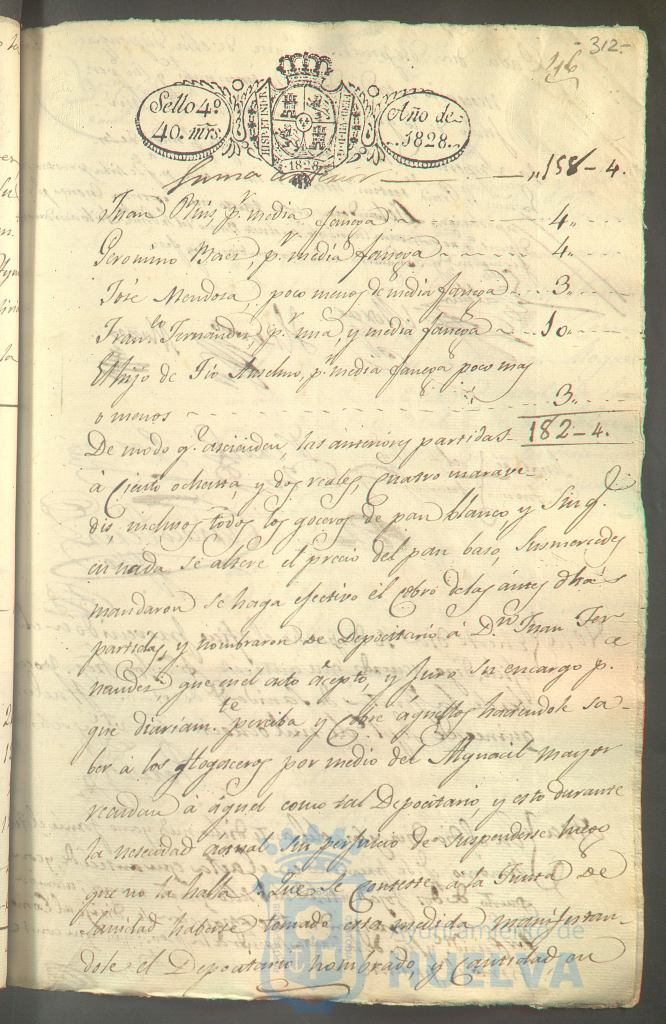 -312-
Sello 4º
40. mrs.
Año de
1828.
HISP. ET IND. R.
1828
Suma anterior — „158 – 4.
Juan Ruis, pr. media fanega 4„
Geronimo Baez, pr. media fanega 4„
José Mendosa, poco menos de media fanega 3„
Franco. Fernandez, pr. una, y media fanega 10
El hijo de Tio Anselmo, pr. media fanega poco mas
o menos 3„
De modo q. ascienden, las anteriores partidas 182 – 4.
à Ciento ochenta, y dos reales, Cuatro marave
dis, inclusos todos los goceros de pan blanco y Sin q.
en nada se altere el precio del pan baso, Susmercedes
mandaron se haga efectivo el cobro delas antes dhas
partidas, y nombraron de Depocitario à Dn. Juan Fer
nandez que en el acto acepto y Juro su encargo pa.
que diariamte. perciba y Cobre aquellos haciendole sa-
ber à los por medio del Alguacil mayor
à aquel como tal Depocitario, y esto durante
la nesecidad actual sin perjuicio de suspenderse luego
que no la halla. Que se Conteste à la Junta de
Sanidad haberse tomado esta medida manifestan-
dole el Depocitario nombrado, y Cantidad en
Ayuntamiento de
HUELVA